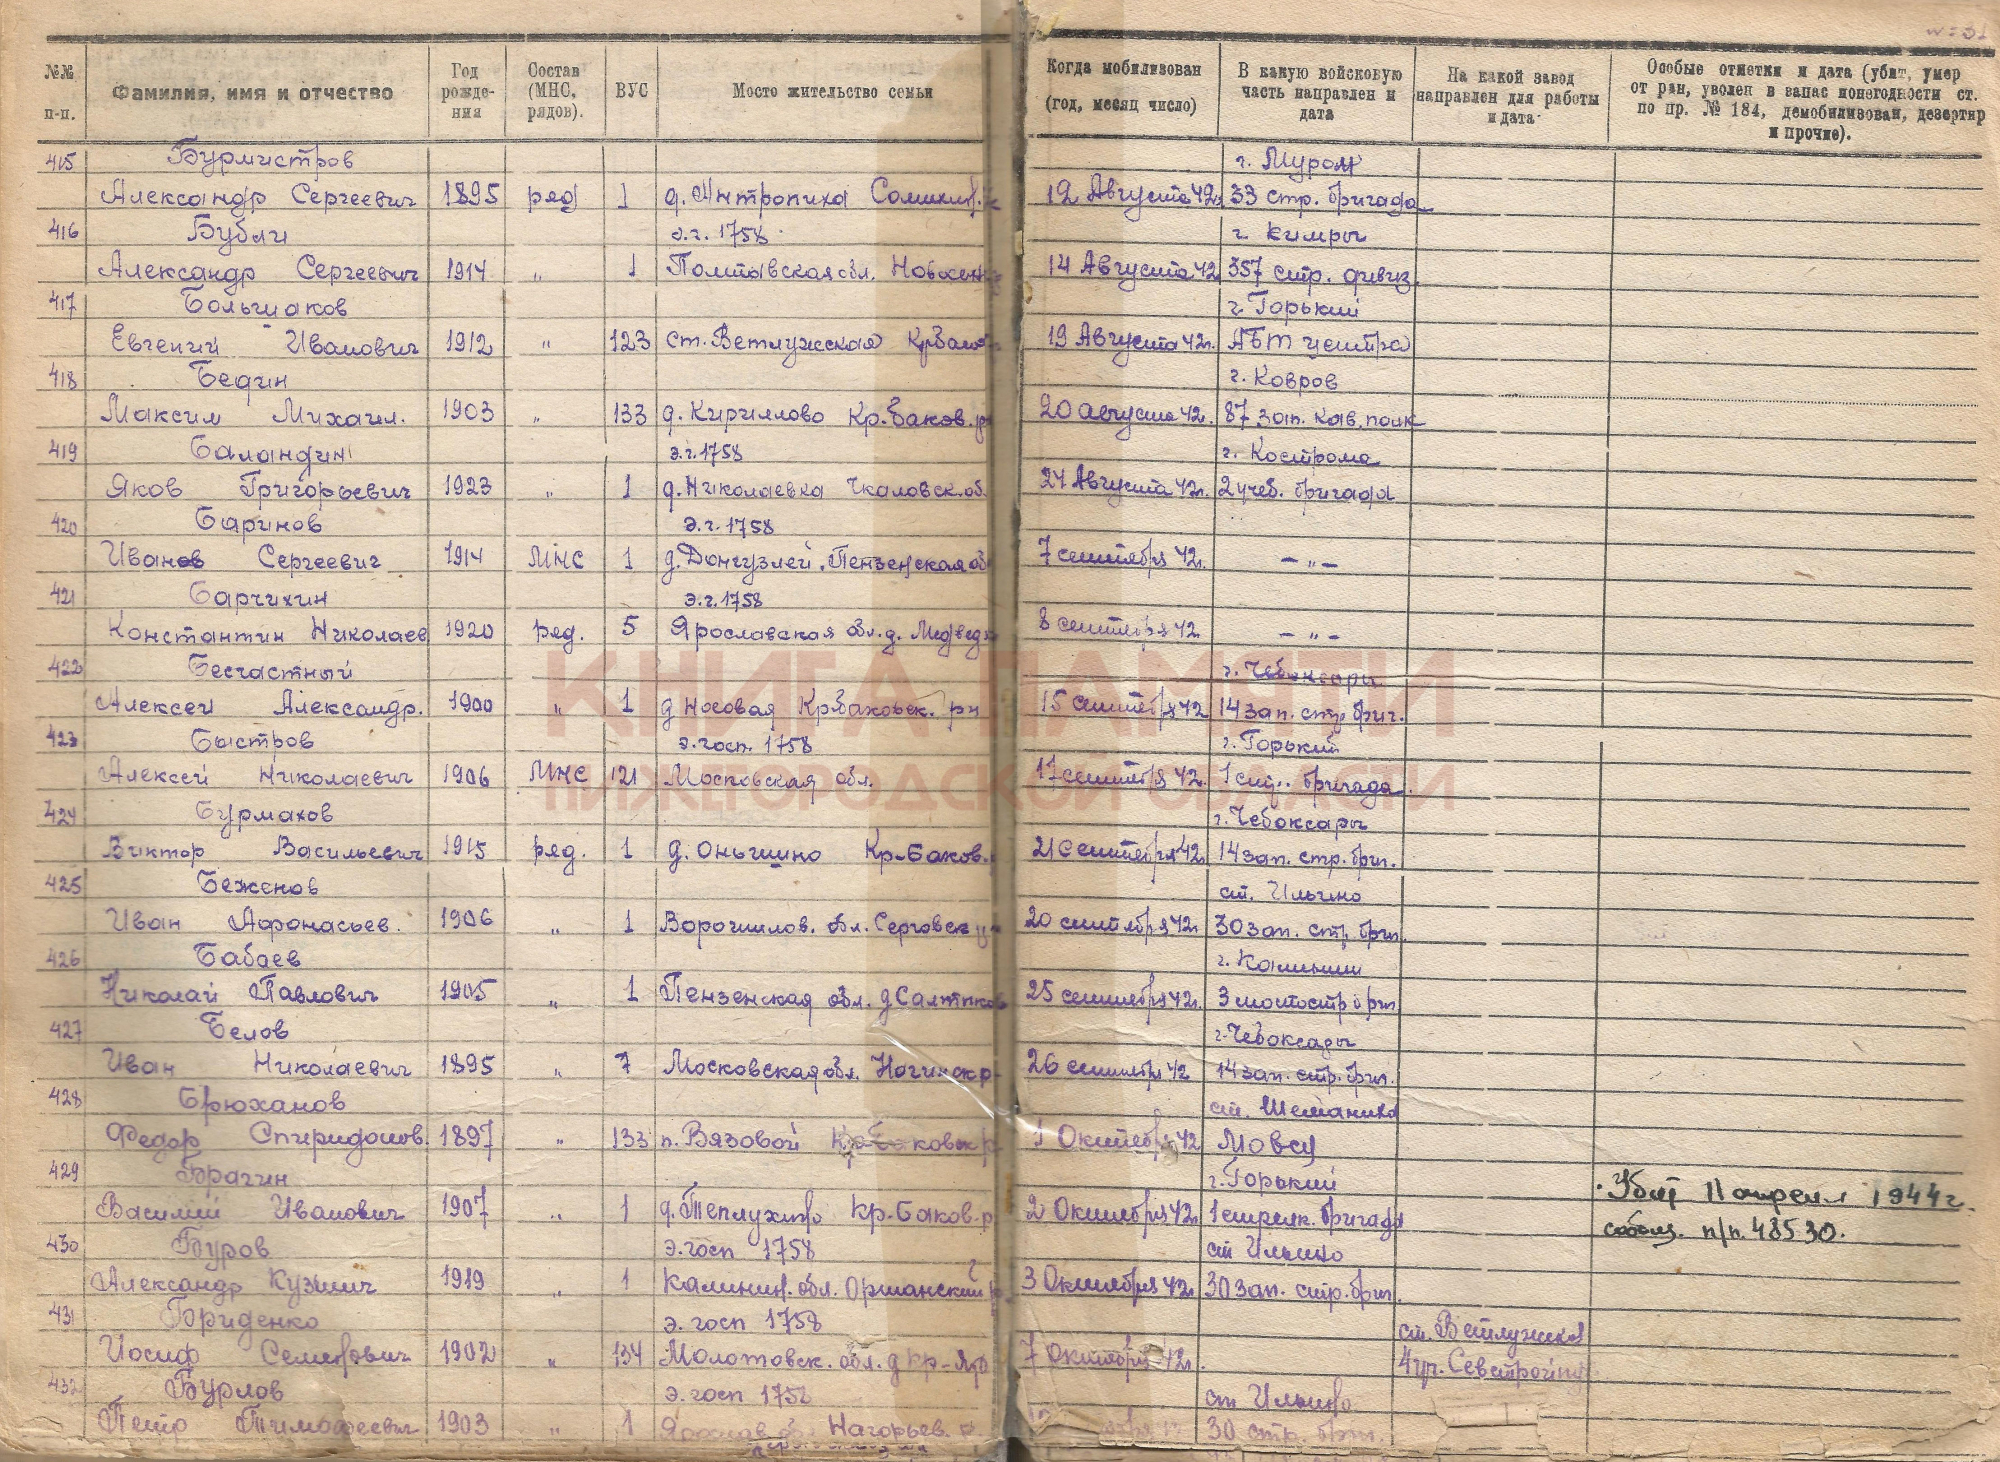 №№ п-п. Фамилия, имя и отчество Год рождения Состав (МНС, рядов). ВУС Место жительство семьи Когда мобилизован (год, месяц число) В какую войсковую часть направлен и дата На какой завод направлен для работы и дата Особые отметки и дата (убит, умер от ран, уволен в запас понегодности ст. по пр. № 184, демобилизован, дезертир и прочие).
415 Бурмистров г. Муром
Александр Сергеевич 1895 ряд 1 д. Антропиха 12 Августа 42г. 33 стр. бригада
416 Бубли э.г. 1758 г. Кимры
Александр Сергеевич 1914 „ 1 Полтавская обл. 14 Августа 42 357 стр. дивиз.
417 Большаков г. Горький
Евгений Иванович 1912 „ 123 ст. Ветлужская 19 Августа 42г. АБТ центра
418 Бедин г. Ковров
Максим Михаил. 1903 „ 133 д. Кириллово Кр.баков. р 20 августа 42г. 87 зап. кав. полк
419 Баландин э.г. 1758 г. Кострома
Яков Григорьевич 1923 „ 1 д. Николаевка Чкаловск. об. 27 Августа 42г. 2 учеб. бригада
420 Баринов э.г. 1758
Иванов Сергеевич 1914 МНС 1 д. Донгузлей, Пензенская об 7 сентября 42г. – „ –
421 Барчихин э.г. 1758
Константин Николаев 1920 ряд. 5 Ярославская обл. д. 8 сентября 42 – „ –
422 Бесчастный г. Чебоксары
Алексей Александр. 1900 „ 1 д Носовая Кр.баковск. рн 15 сентября 42 14 зап. стр. бриг.
423 Быстров э. госп. 1758 г. Горький
Алексей Николаевич 1906 МНС 121 Московская обл. 17 сентября 42г. 1 стр. бригада
424 Бурмахов г. Чебоксары
Виктор Васильевич 1915 ряд. 1 д. Оньшино Кр-Баков. 21 сентября 42 14 зап. стр. бриг.
425 Беженов ст. Ильино
Иван Афонасьев. 1906 „ 1 Ворошилов. обл. 20 сентября 42г. 30 зап. стр. бриг.
426 Бабаев г. Калинин
Николай Павлович 1905 „ 1 Пензенская обл. 25 сентября 42г. 3
427 Белов г. Чебоксары
Иван Николаевич 1895 „ 7 Московская обл. Ногинск р- 26 сентября 42 14 зап. стр. бриг.
428 Брюханов ст. Шеманиха
Федор Спиридонов. 1897 „ 133 п. Вязовой 1 Октября 42
429 Брагин г. Горький Убит 11 апреля 1944 г.
Василий Иванович 1907 „ 1 д. Теплухино Кр-Баков. р 2 Октября 42г. 1 стрелк. бригада сообщ. п/п. 48530.
430 Буров э. госп 1758 ст Ильино
Александр Кузмич 1919 „ 1 Калинин. обл. Оршанский 3 Октября 42г. 30 зап. стр. бриг.
431 Бриденко э. госп 1758 ст. Ветлужская
Иосиф Семенович 1902 „ 134 Молотовск. обл. 7 октября 42г. 4 уч.
432 Бурлов э. госп 1758 ст Ильино
Петр Тимофеевич 1903 „ 1 Нагорьев. р. 30 стр. бриг.
КНИГА ПАМЯТИ
НИЖЕГОРОДСКОЙ ОБЛАСТИ